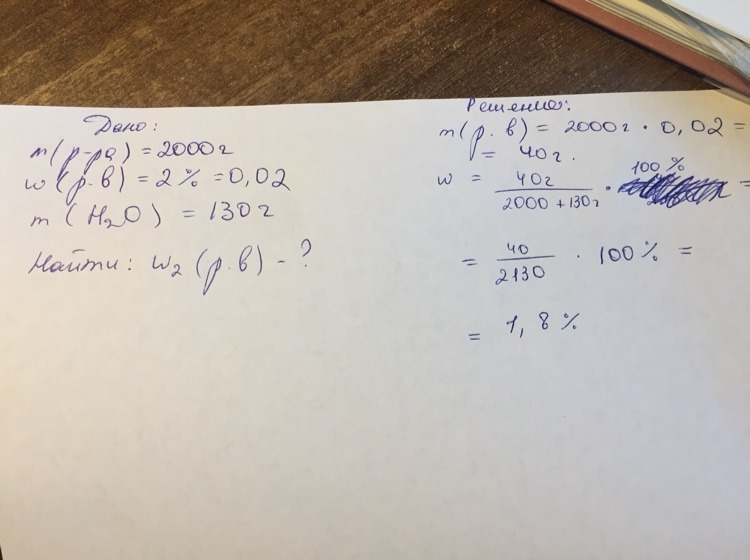 Дано:
m(р-ра) = 2000г
w(р.в) = 2% = 0,02
m(H₂O) = 130г
Найти: w₂(р.в) - ?
Решение:
m(р.в) = 2000г · 0,02 =
= 40г.
w = 40г / 2000 + 130г · 100% =
= 40 / 2130 · 100% =
= 1,8%